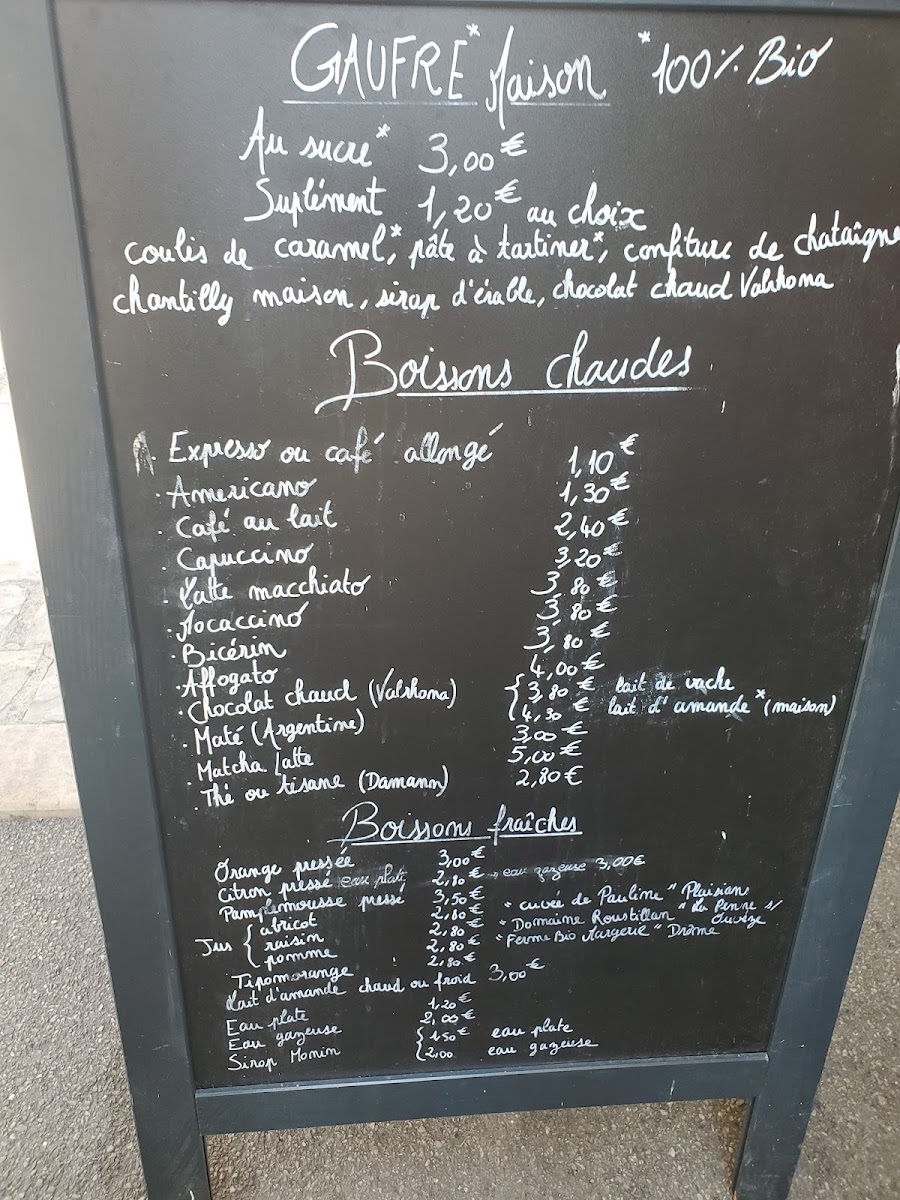 GAUFRE* Maison *100% Bio
Au sucre* 3,00€
Suplément 1,20€ au choix
coulis de caramel*, pâte à tartiner*, confiture de chataîgne
chantilly maison, sirop d'érable, chocolat chaud Valrhona
Boissons chaudes
. Expresso ou café allongé 1,10€
. Americano 1,30€
. Café au lait 2,40€
. Capuccino 3,20€
. Latte macchiato 3,80€
. Mocaccino 3,80€
. Bicérin 3,80€
. Affogato 4,00€
. Chocolat chaud (Valrhona) { 3,80€ lait de vache
4,30€ lait d'amande* (maison)
. Maté (Argentine) 3,00€
. Matcha Latte 5,00€
. Thé ou tisane (Damann) 2,80€
Boissons fraîches
Orange pressée 3,00€
Citron pressé eau plate 2,80€ eau gazeuse 3,00€
Pamplemousse pressé 3,50€
Jus { abricot 2,80€ "cuvée de Pauline" Plaisians
raisin 2,80€ "Domaine Roustillan" La Penne s/ Ouvèze
pomme 2,80€ "Ferme Bio Margerie" Drôme
Tipomorange 2,80€
Lait d'amande chaud ou froid 3,00€
Eau plate 1,20€
Eau gazeuse 2,00€
Sirop Monin { 1,50€ eau plate
2,00 eau gazeuse